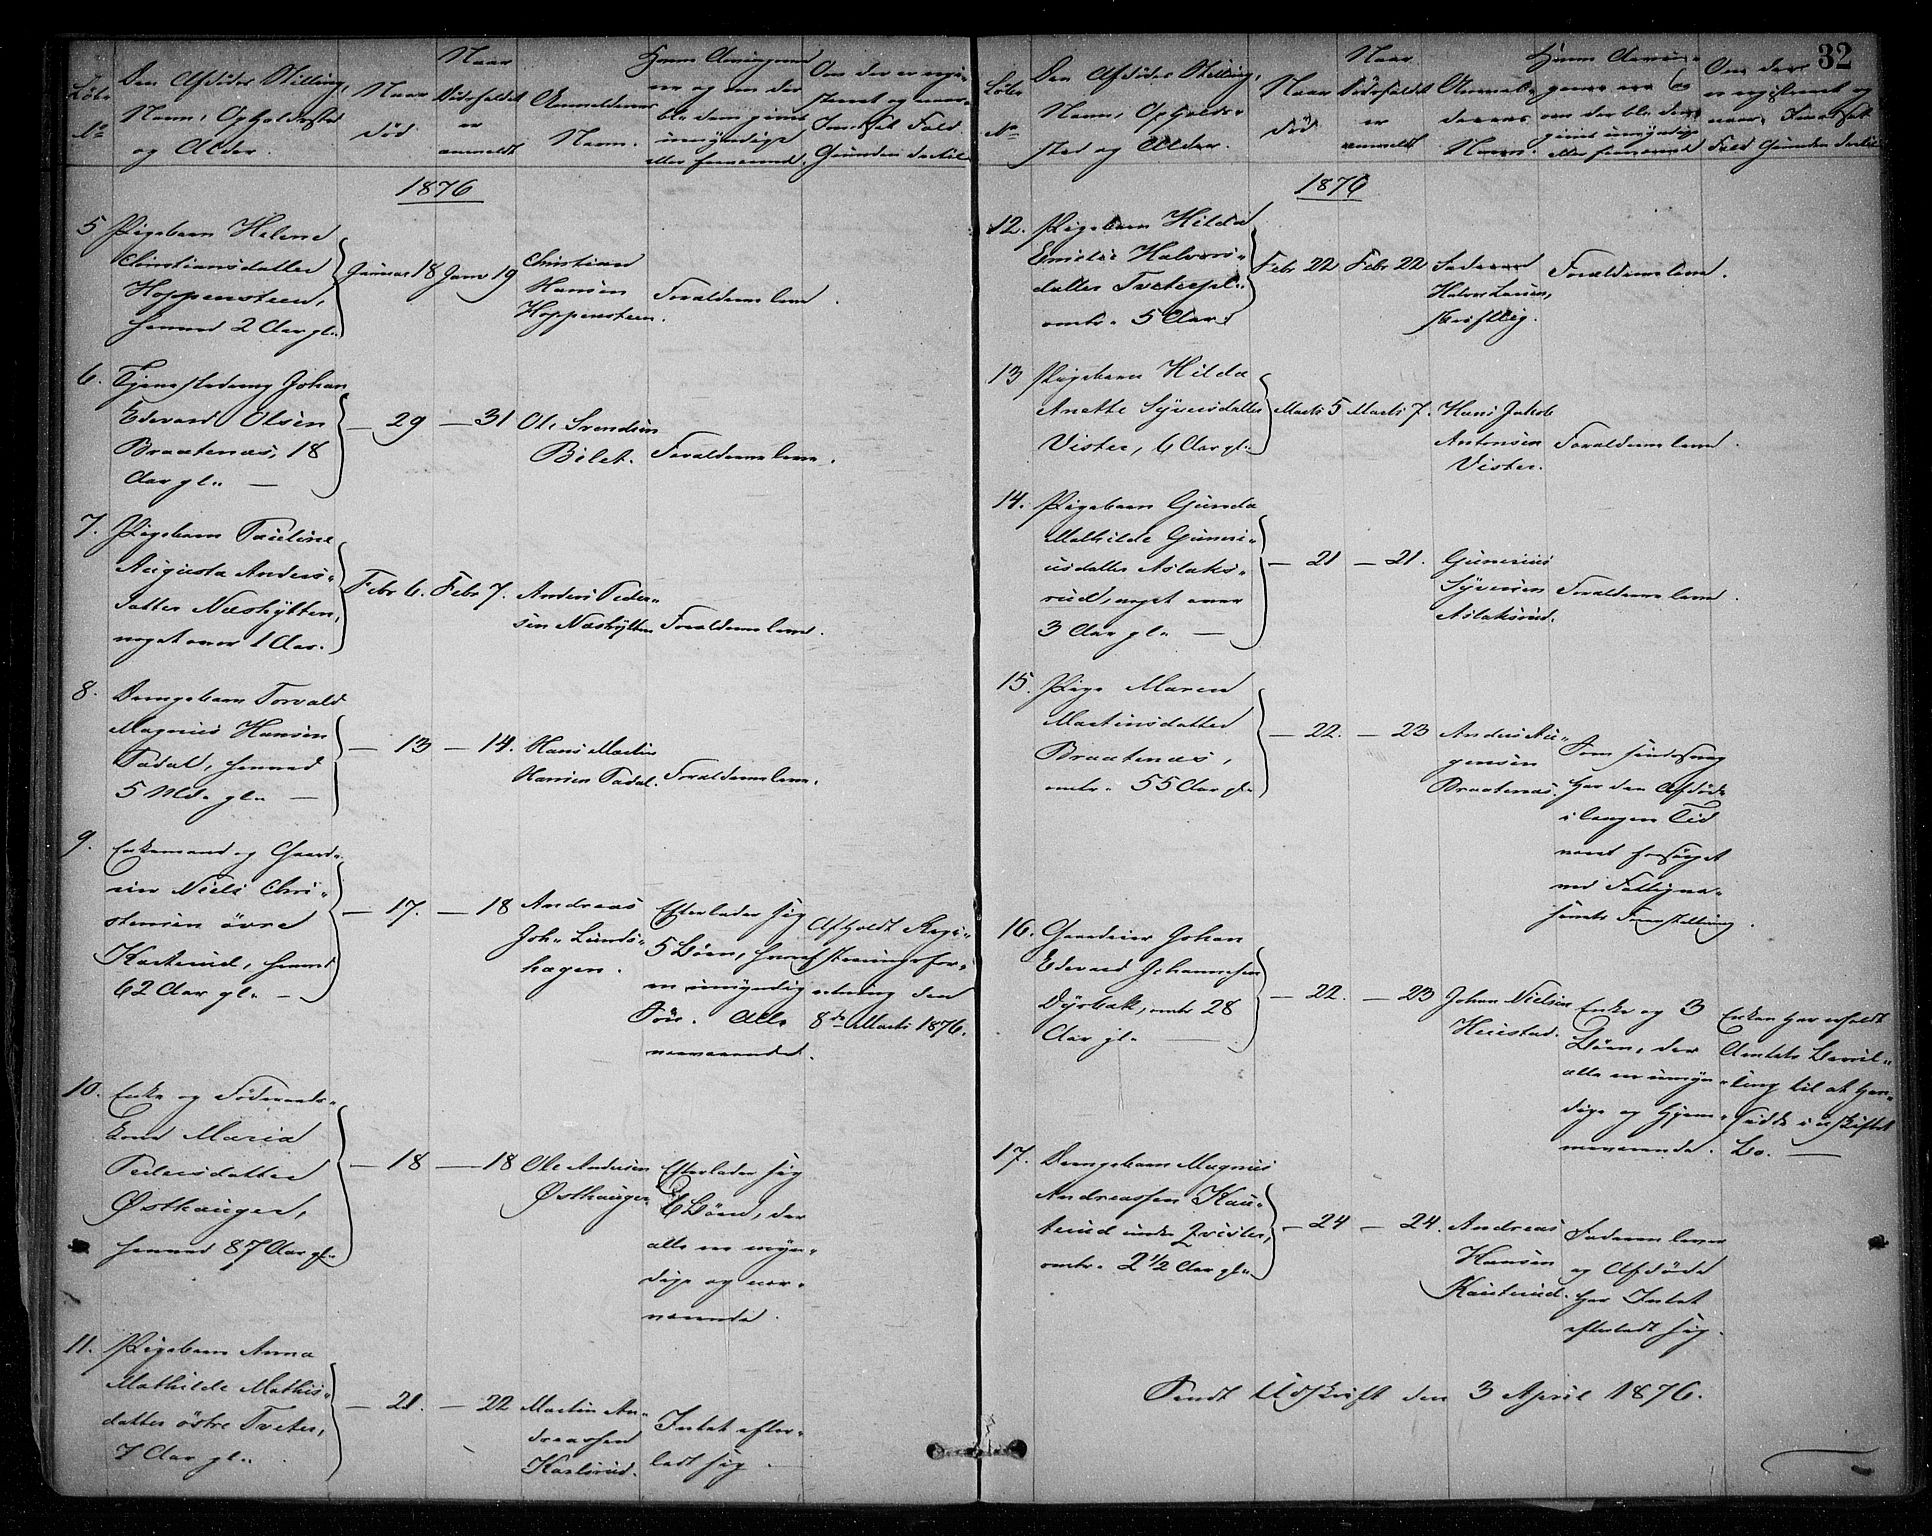 32
Løbe
No
Den Afdødes Stilling,
Navn, Opholdssted
og Alder.
Naar
død.
Naar
Dødsfaldet
er
anmeldt
Anmelderens
Navn.
Hvem Arvingerne
ere og om der
bl. dem gives
umyndige
eller fraværende.
Om der er regi-
streret og naar.
I modsat Fald
Grunden dertil
1876
5 Pigebarn Helene
Christiansdatter
Hoppensteen,
henved 2 Aar gl.
Januar 18 Janr 19
Christian
Hansen
Hoppensteen.
Forældrene leve.
6. Tjenestedreng Johan
Edevard Olsen
Braatenæs, 18
Aar gl. —
— 29 — 31
Ole Svendsen
Bilet.
Forældrene leve.
7. Pigebarn Pauline
Augusta Anders-
datter Næshytten,
noget over 1 Aar.
Febr 6. Febr 7.
Anders Peder-
sen Næshytten
Forældrene leve.
8. Drengebarn Torvald
Magnus Hansen
Tadal, henved
5 Md. gl. —
— 13 — 14.
Hans Martin
Hansen Tadal.
Forældrene leve.
9. Enkemand og Gaard-
eier Niels Chri-
stensen øvre
Kasterud, henved
62 Aar gl. —
— 17. — 18
Andreas
Joh. Lunds-
hagen.
Efterlader sig
5 Børn, hvoraf
en umyndig
Søn. Alle
nærværende.
Afholdt Regi-
streringsfor-
retning den
8de Marts 1876.
10. Enke og Føderaads-
kone Maria
Pedersdatter
Østhaugen,
henved 87 Aar gl.
— 18 — 18
Ole Andersen
Østhaugen
Efterlader sig
6 Børn, der
alle ere myn-
dige og nær-
værende.
11. Pigebarn Anna
Mathilde Mathis-
datter østre Tveter,
7 Aar gl.
— 21. — 22
Martin An-
dreassen
Karlsrud.
Intet efter-
ladt sig.
Løbe
No
Den Afdødes Stilling,
Navn, Opholds-
sted og Alder.
Naar
død.
Naar
Dødsfaldet
er
anmeldt
Anmel-
derens
Navn.
Hvem Arvin-
gerne ere og
om der bl. dem
gives umyndige
eller fraværende
Om der
er registreret og
naar. I modsat
Fald Grunden dertil
1876
12. Pigebarn Hilda
Halvors-
datter
omtr. 5 Aar.
Febr 22 Febr 22
Faderen
Halvor Larsen,
skriftlig.
Forældrene leve.
13 Pigebarn Hilda
Anette Syversdatter
Vister, 6 Aar gl.
Marts 5 Marts 7.
Hans Jakob
Antonsen
Vister.
Forældrene leve.
14. Pigebarn Gunda
Mathilde Guneri-
usdatter Aslaks-
rud, noget over
3 Aar gl. —
— 21 — 21.
Gunerius
Syversen
Aslaksrud.
Forældrene leve.
15. Pige Maren
Martinsdatter
Braatenæs,
omtr. 55 Aar gl.
— 22. — 23
Anders Au-
gensen
Braatenæs.
Som sindssvag
har den Afdøde
i længere Tid
været forsørget
ved Fattigvæ-
senets Foranstaltning.
16. Gaardeier Johan
Edevard Johannesen
Dyrbak, omtr 28
Aar gl. —
— 22. — 23
Johan Nielsen
Huustad.
Enke og 3
Børn, der
alle ere umyn-
dige og hjem-
meværende.
Enken har erholdt
Amtets Bevil-
ling til at hen-
sidde i uskiftet
Bo. —
17. Drengebarn Magnus
Andreassen Kau-
terud under Qvister,
omtr. 2 1/2 Aar gl.
— 24 — 24.
Andreas
Hansen
Kauterud.
Faderen lever
og Afdøde
har Intet
efterladt sig.
Sendt Udskrift den 3 April 1876.